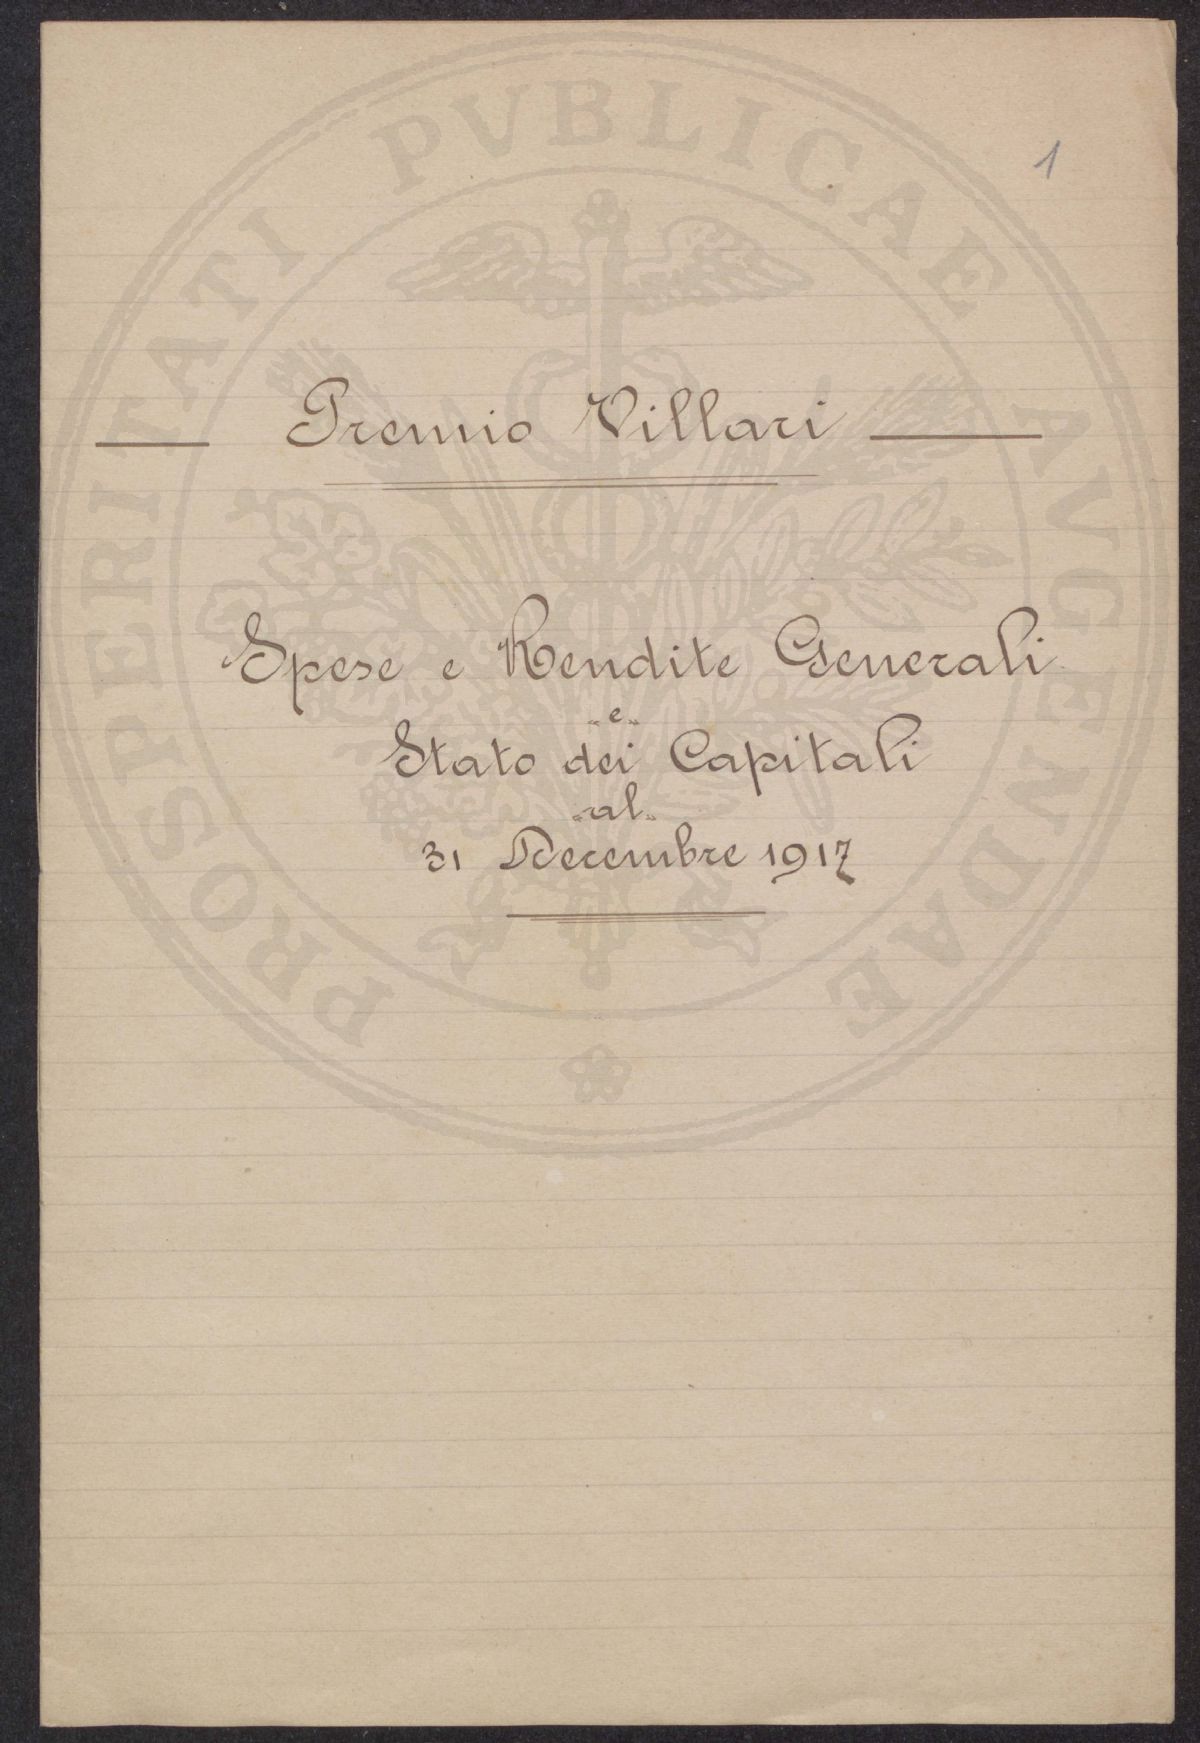 PROSPERITATI PVBLICAE AVGENDAE
1
Premio Villari
Spese e Rendite Generali
"e"
Stato dei Capitali
"al"
31 Decembre 1917